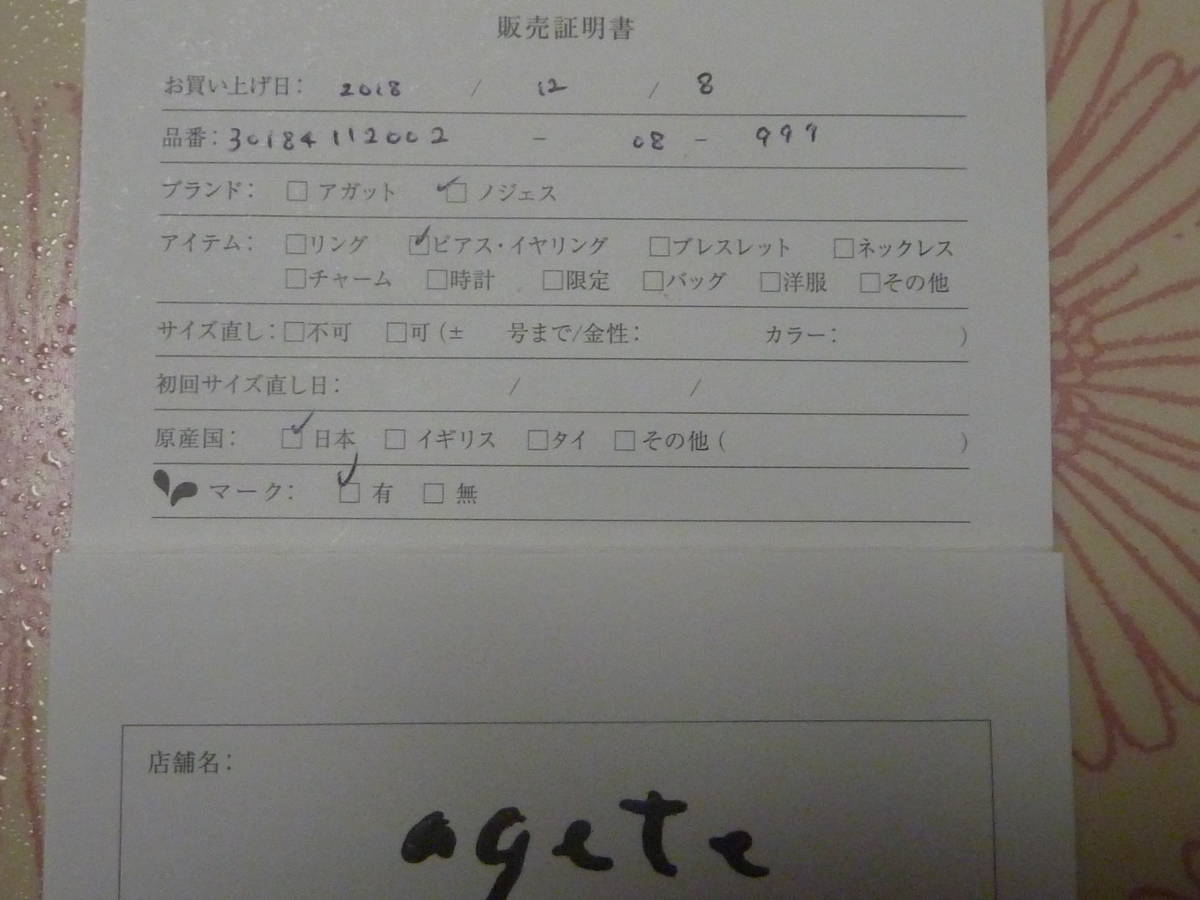 販売証明書
お買い上げ日： 2018 / 12 / 8
品番：30184112002 - 08 - 999
ブランド： □ アガット ☑ ノジェス
アイテム： □リング ☑ピアス・イヤリング □ブレスレット □ネックレス
□チャーム □時計 □限定 □バッグ □洋服 □その他
サイズ直し：□不可 □可（± 号まで/金性： カラー： ）
初回サイズ直し日： / /
原産国： ☑ 日本 □ イギリス □タイ □その他（ ）
マーク： ☑ 有 □ 無
店舗名：
agete